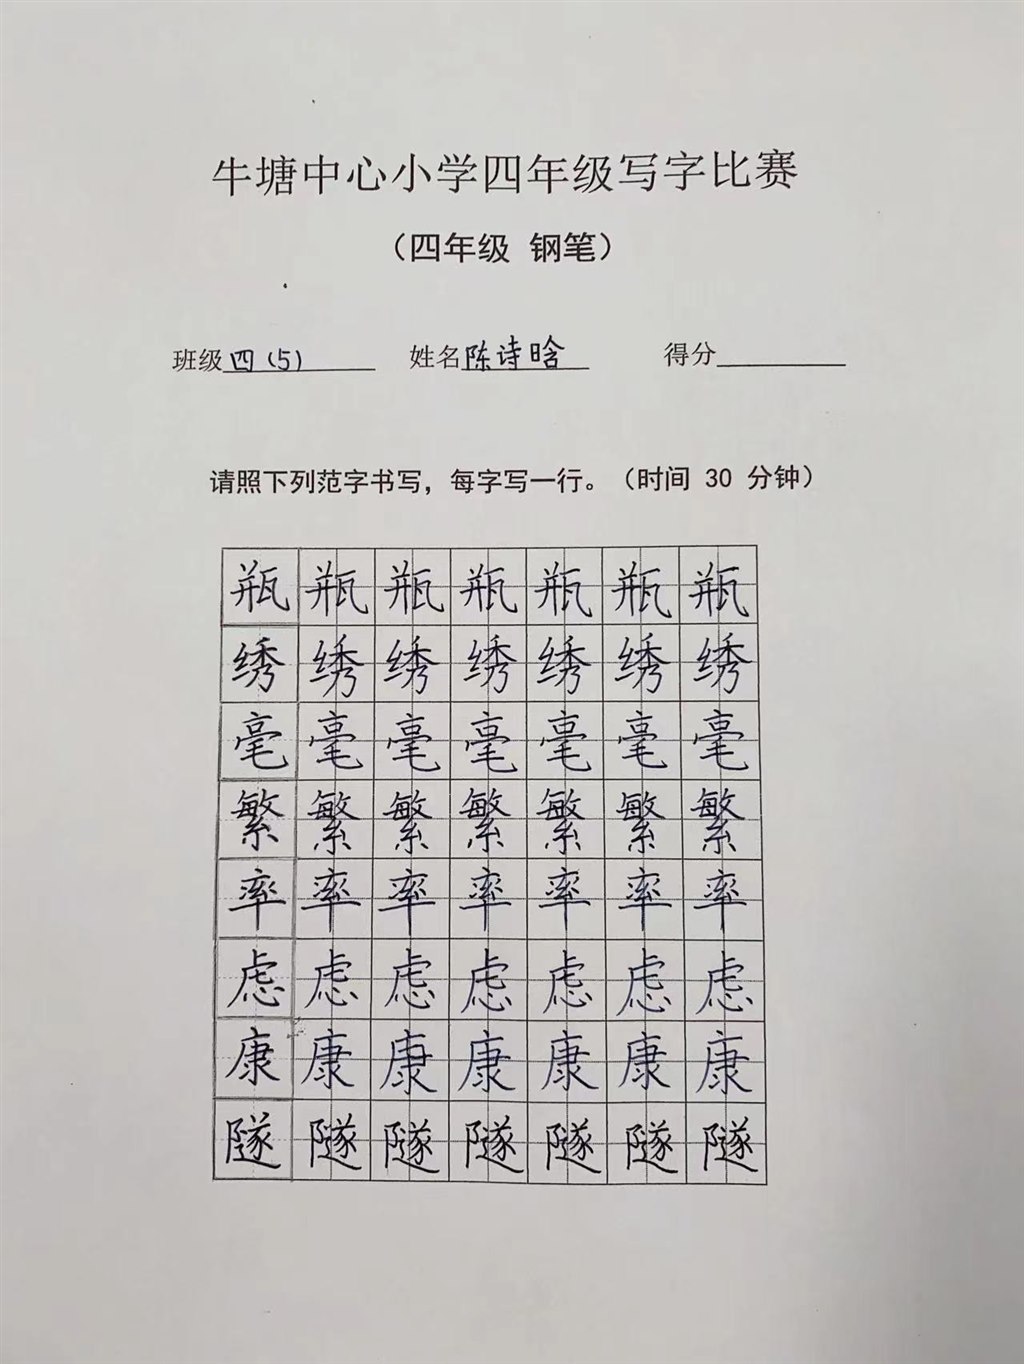 牛塘中心小学四年级写字比赛
（四年级 钢笔）
班级四（5） 姓名陈诗晗 得分
请照下列范字书写，每字写一行。（时间 30 分钟）
瓶瓶瓶瓶瓶瓶瓶
绣绣绣绣绣绣绣
毫毫毫毫毫毫毫
繁繁繁繁繁繁繁
率率率率率率率
虑虑虑虑虑虑虑
康康康康康康康
隧隧隧隧隧隧隧